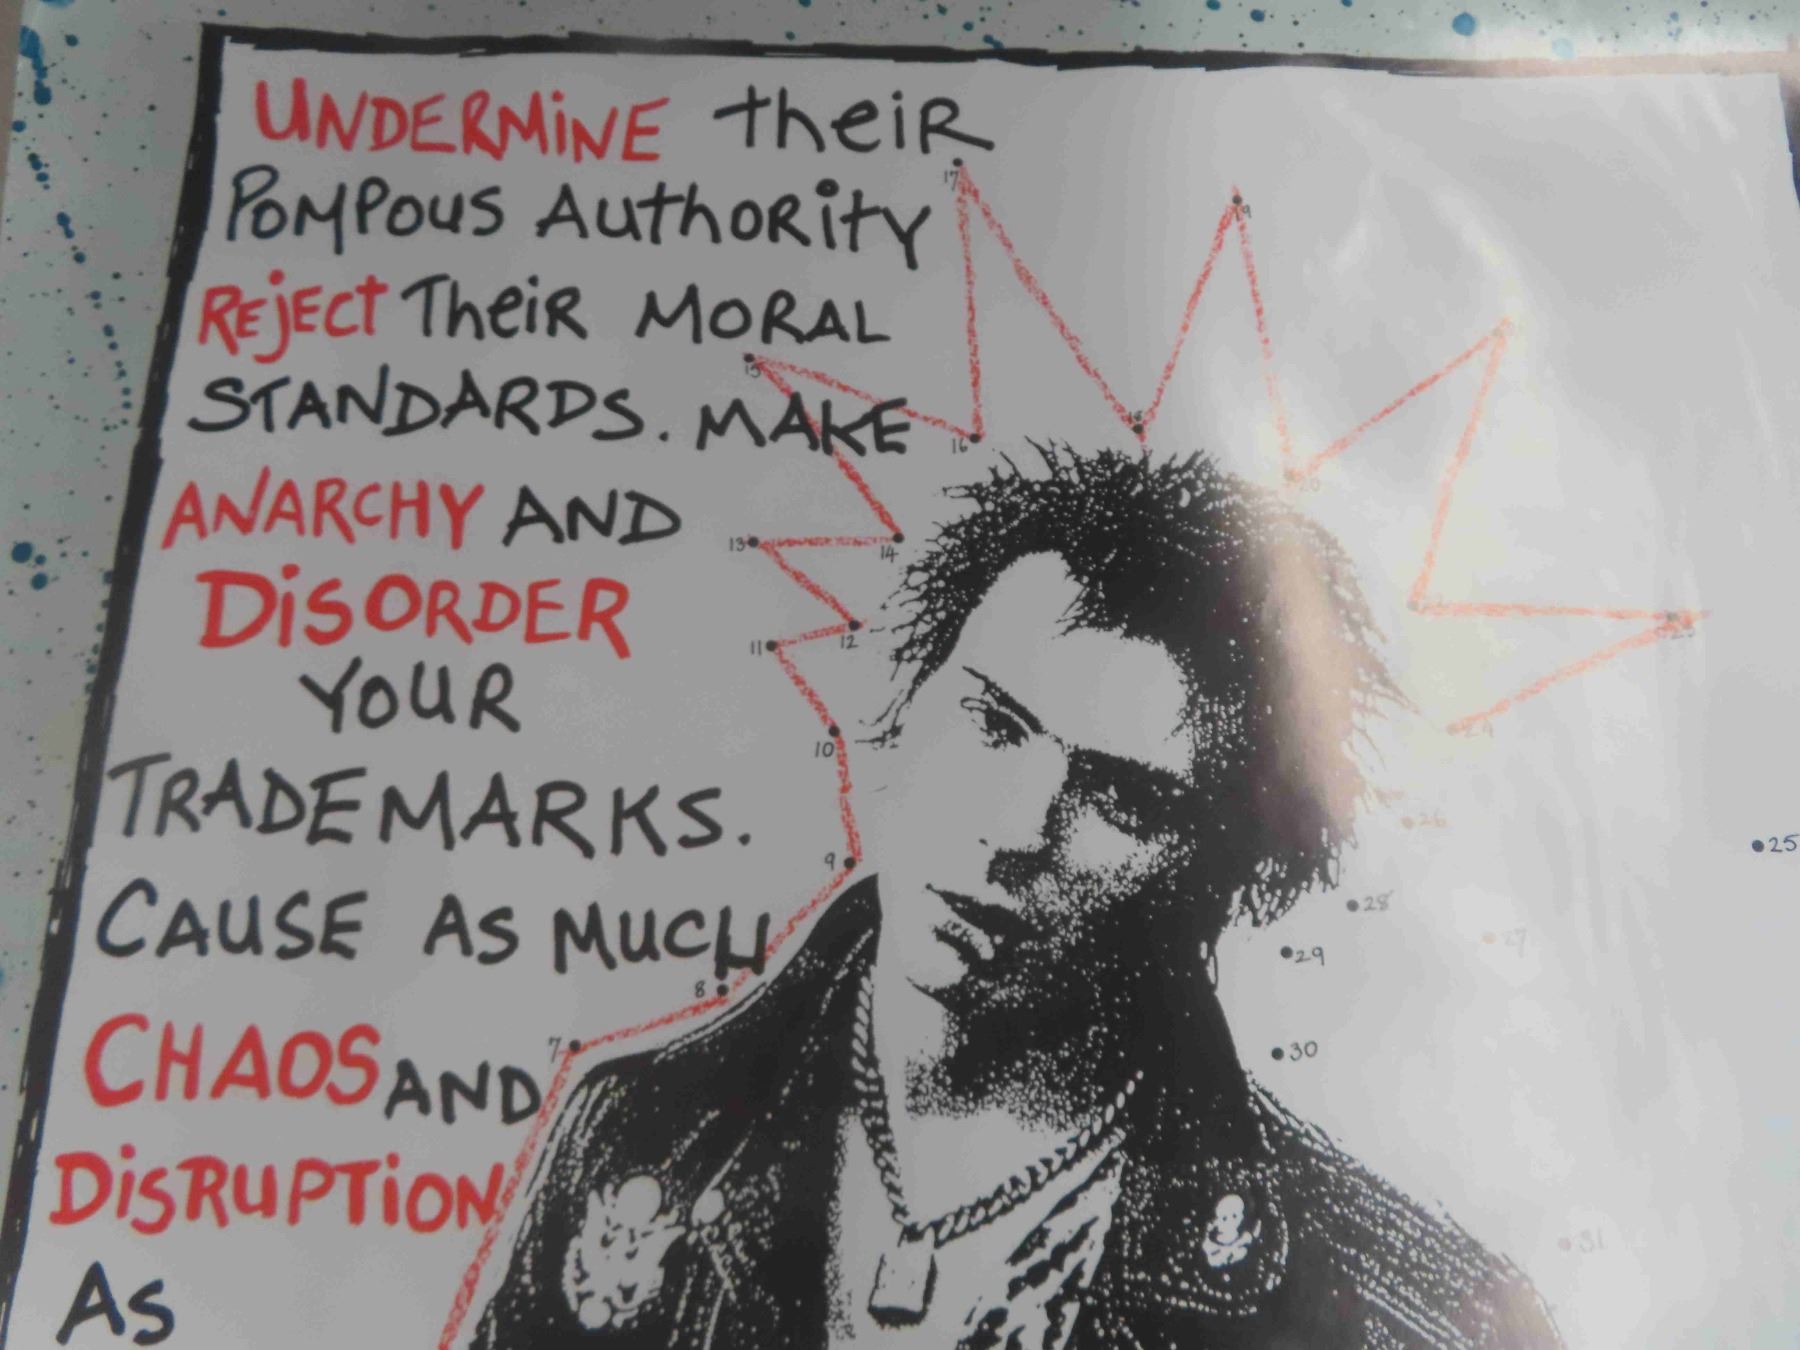 UNDERMINE their
POMPOUS AUTHORITY
REJECT THEIR MORAL
STANDARDS. MAKE
ANARCHY AND
DISORDER
YOUR
TRADEMARKS.
CAUSE AS MUCH
CHAOS AND
DISRUPTION
AS
17
19
15
18
16
20
13
14
23
11
12
24
10
26
25
9
28
27
29
8
7
30
31